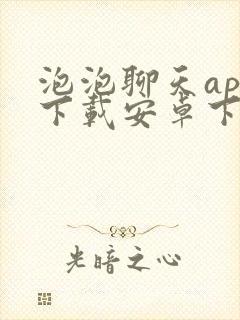 泡泡聊天ap
下载安卓下
光暗之心